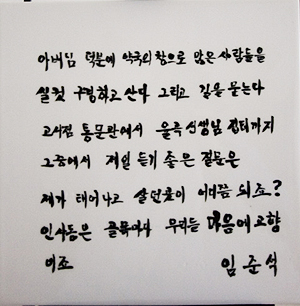 아버님 덕분에 약국의 창으로 많은 사람들을
실컷 구경하고 산다 그리고 길을 묻는다
고서점 통문관에서 율곡 선생님 집터까지
그중에서 제일 듣기 좋은 질문은
제가 태어나고 살던 곳이 어디쯤 되죠?
인사동은 골목마다 우리들 마음에 고향
이죠 임준석